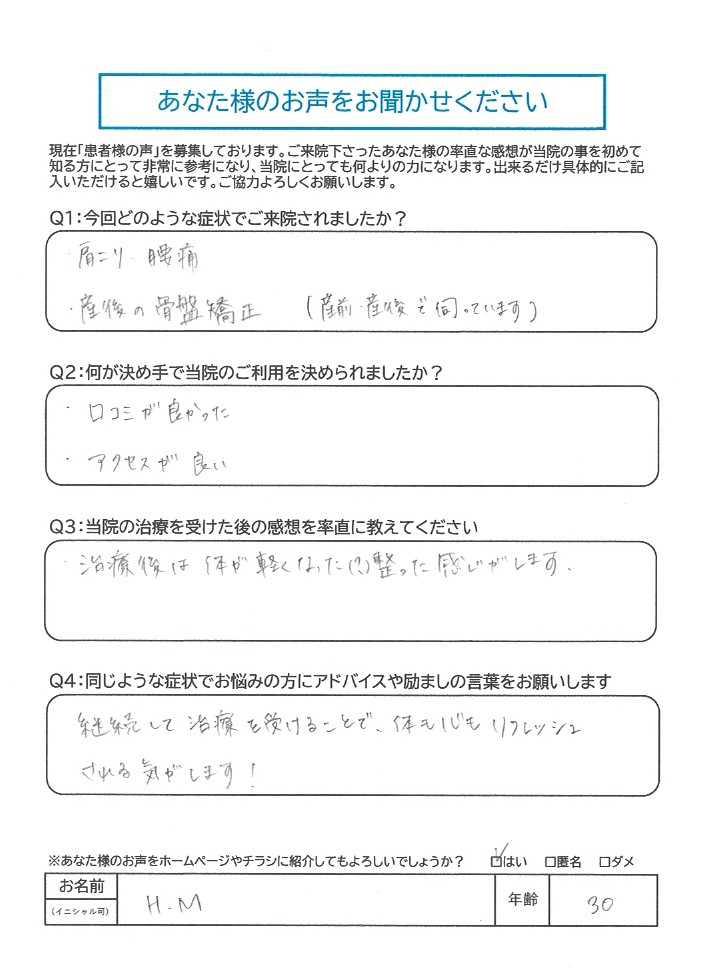 あなた様のお声をお聞かせください
現在「患者様の声」を募集しております。ご来院下さったあなた様の率直な感想が当院の事を初めて
知る方にとって非常に参考になり、当院にとっても何よりの力になります。出来るだけ具体的にご記
入いただけると嬉しいです。ご協力よろしくお願いします。
Q1:今回どのような症状でご来院されましたか?
・肩こり・腰痛
・産後の骨盤矯正 (産前・産後で伺っています)
Q2:何が決め手で当院のご利用を決められましたか?
・口コミが良かった
・アクセスが良い
Q3:当院の治療を受けた後の感想を率直に教えてください
・治療後は体が軽くなった(?)整った感じがします.
Q4:同じような症状でお悩みの方にアドバイスや励ましの言葉をお願いします
継続して治療を受けることで、体も心もリフレッシュ
される気がします!
※あなた様のお声をホームページやチラシに紹介してもよろしいでしょうか? ☑はい □匿名 □ダメ
お名前 H.M 年齢 30
(イニシャル可)